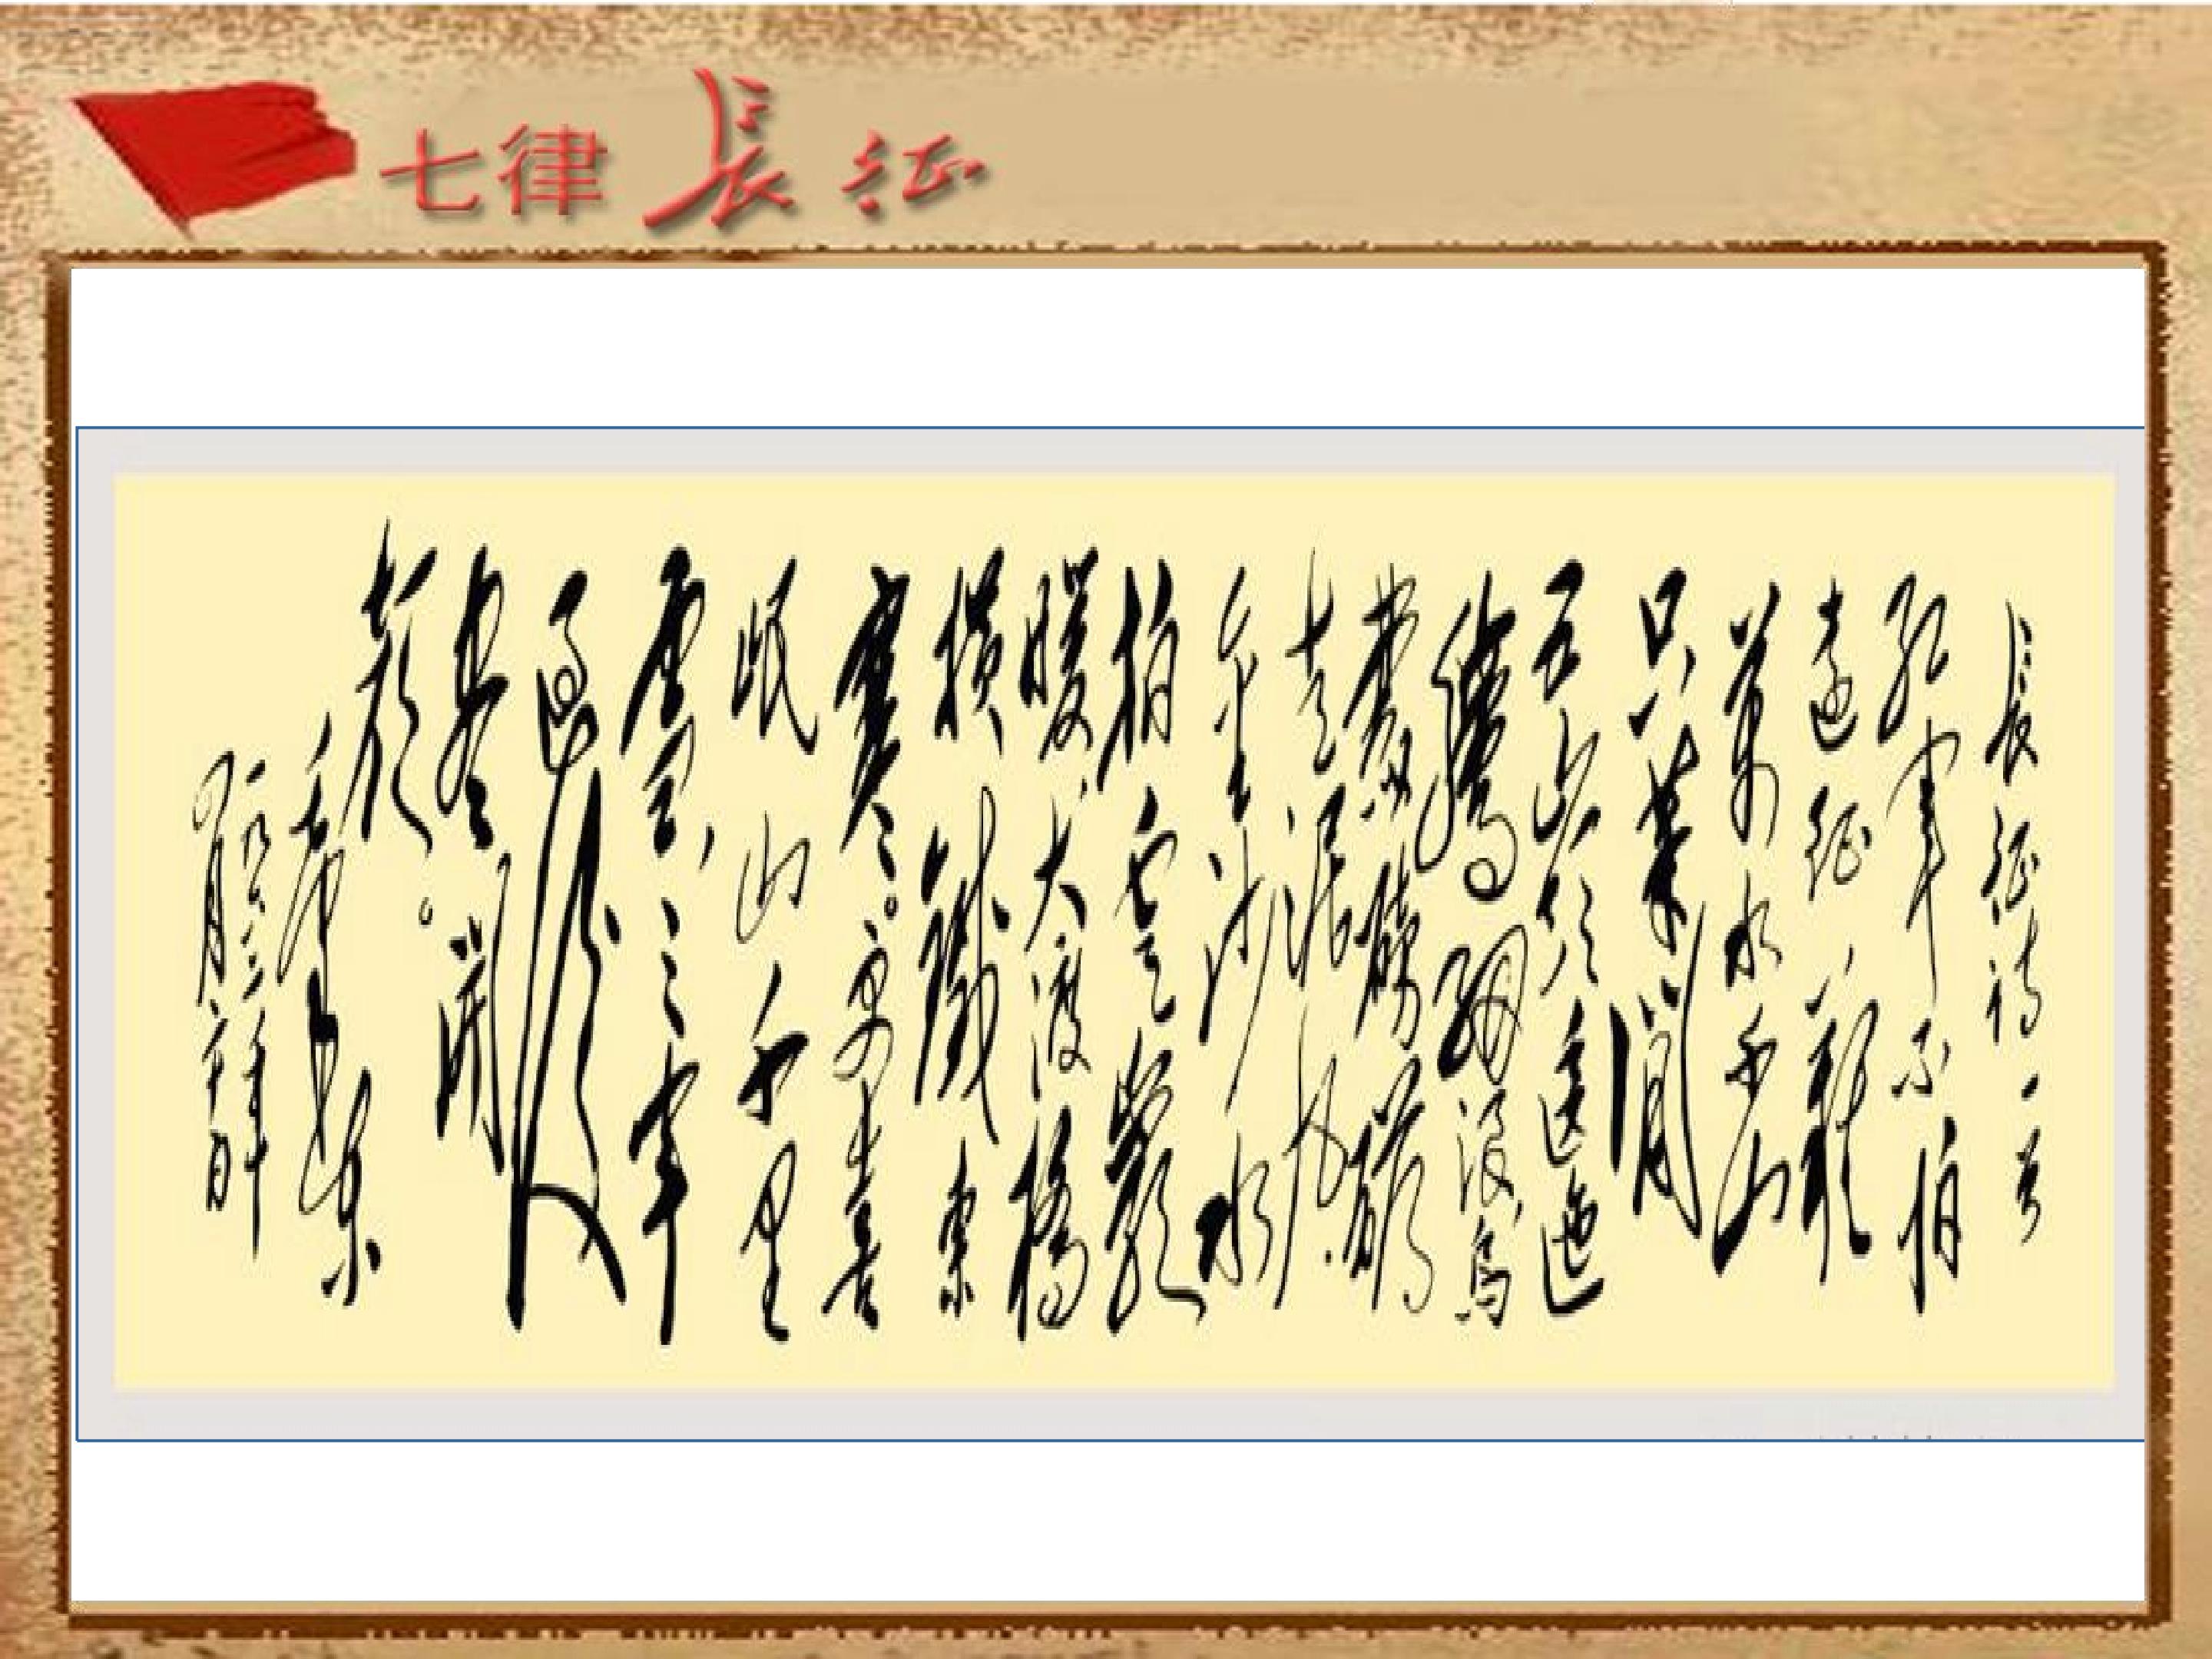 七律 長征
長征詩一首
紅軍不怕
遠征難，
萬水千山
只等閒
五嶺逶迤
騰細浪，烏
蒙磅礴
走泥丸．
金沙水
拍云崖
暖，大渡橋
橫鐵索
寒。更喜
岷山千里
雪，三軍
過後
盡開
顏。
毛澤東
一九六二年
四月二十日